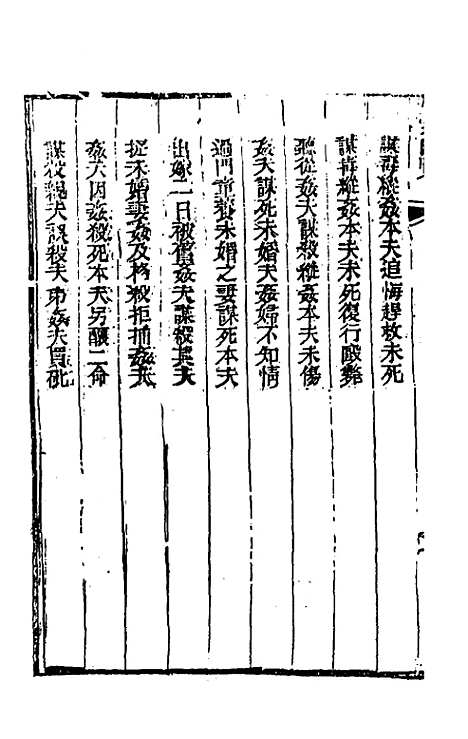 謀毒縱姦本夫追悔趕救未死
謀毒縱姦本夫未死復行毆斃
聽從姦夫謀殺縱姦本夫未傷
姦夫謀死未婚夫姦婦不知情
過門童養未婚之妻謀死本夫
出嫁一日被舊姦夫謀殺其夫
捉未婚妻姦及格殺拒捕姦夫
姦夫因姦殺死本夫另釀二命
謀殺親夫誤殺夫弟姦夫買砒